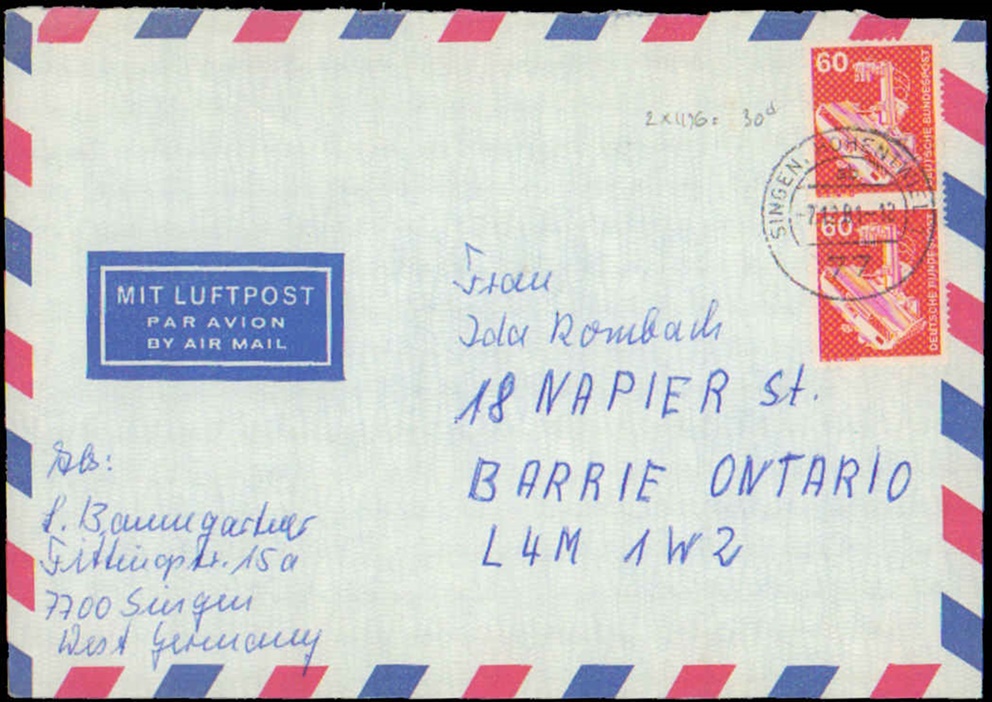 60
DEUTSCHE BUNDESPOST
2 x 1176 = 30d
SINGEN, HOHENTWIEL
77
60
DEUTSCHE BUNDESPOST
MIT LUFTPOST
PAR AVION
BY AIR MAIL
Frau
Ida Rombach
18 NAPIER St.
BARRIE ONTARIO
L4M 1W2
Abs:
Baumgartner
15a
7700 Singen
West Germany